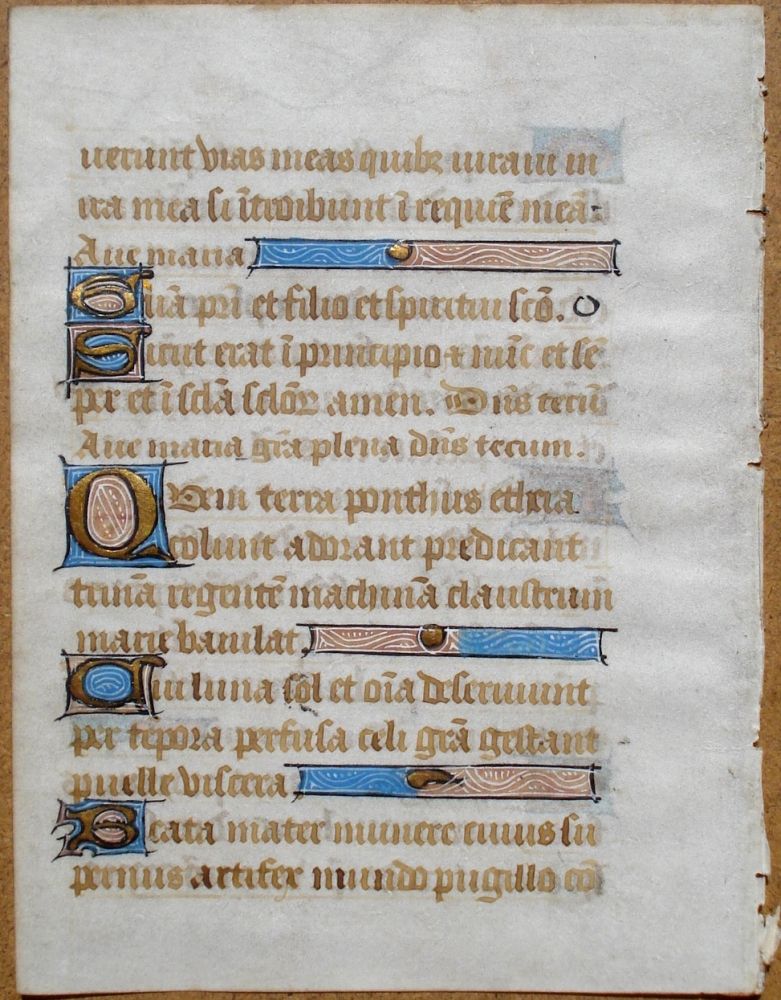 uerunt vias meas quibz iuraui in
ira mea si ītroibunt ī requiē meā:
Aue maria
Gľiā pri et filio et spiritui scō.
Sicut erat ī principio ⁊ nūc et sē
per et ī sclā sclōꝝ amen. Dn̄s tecū
Aue maria grā plena dn̄s tecum.
QVem terra ponthus ethera
colunt adorant predicant
trinā regentē machinā claustrum
marie baiulat
Cui luna sol et oīa deseruiunt
per tēpora perfusa celi grā gestant
puelle viscera
Beata mater munere cuius su
pernus artifex mundo pugillo cō